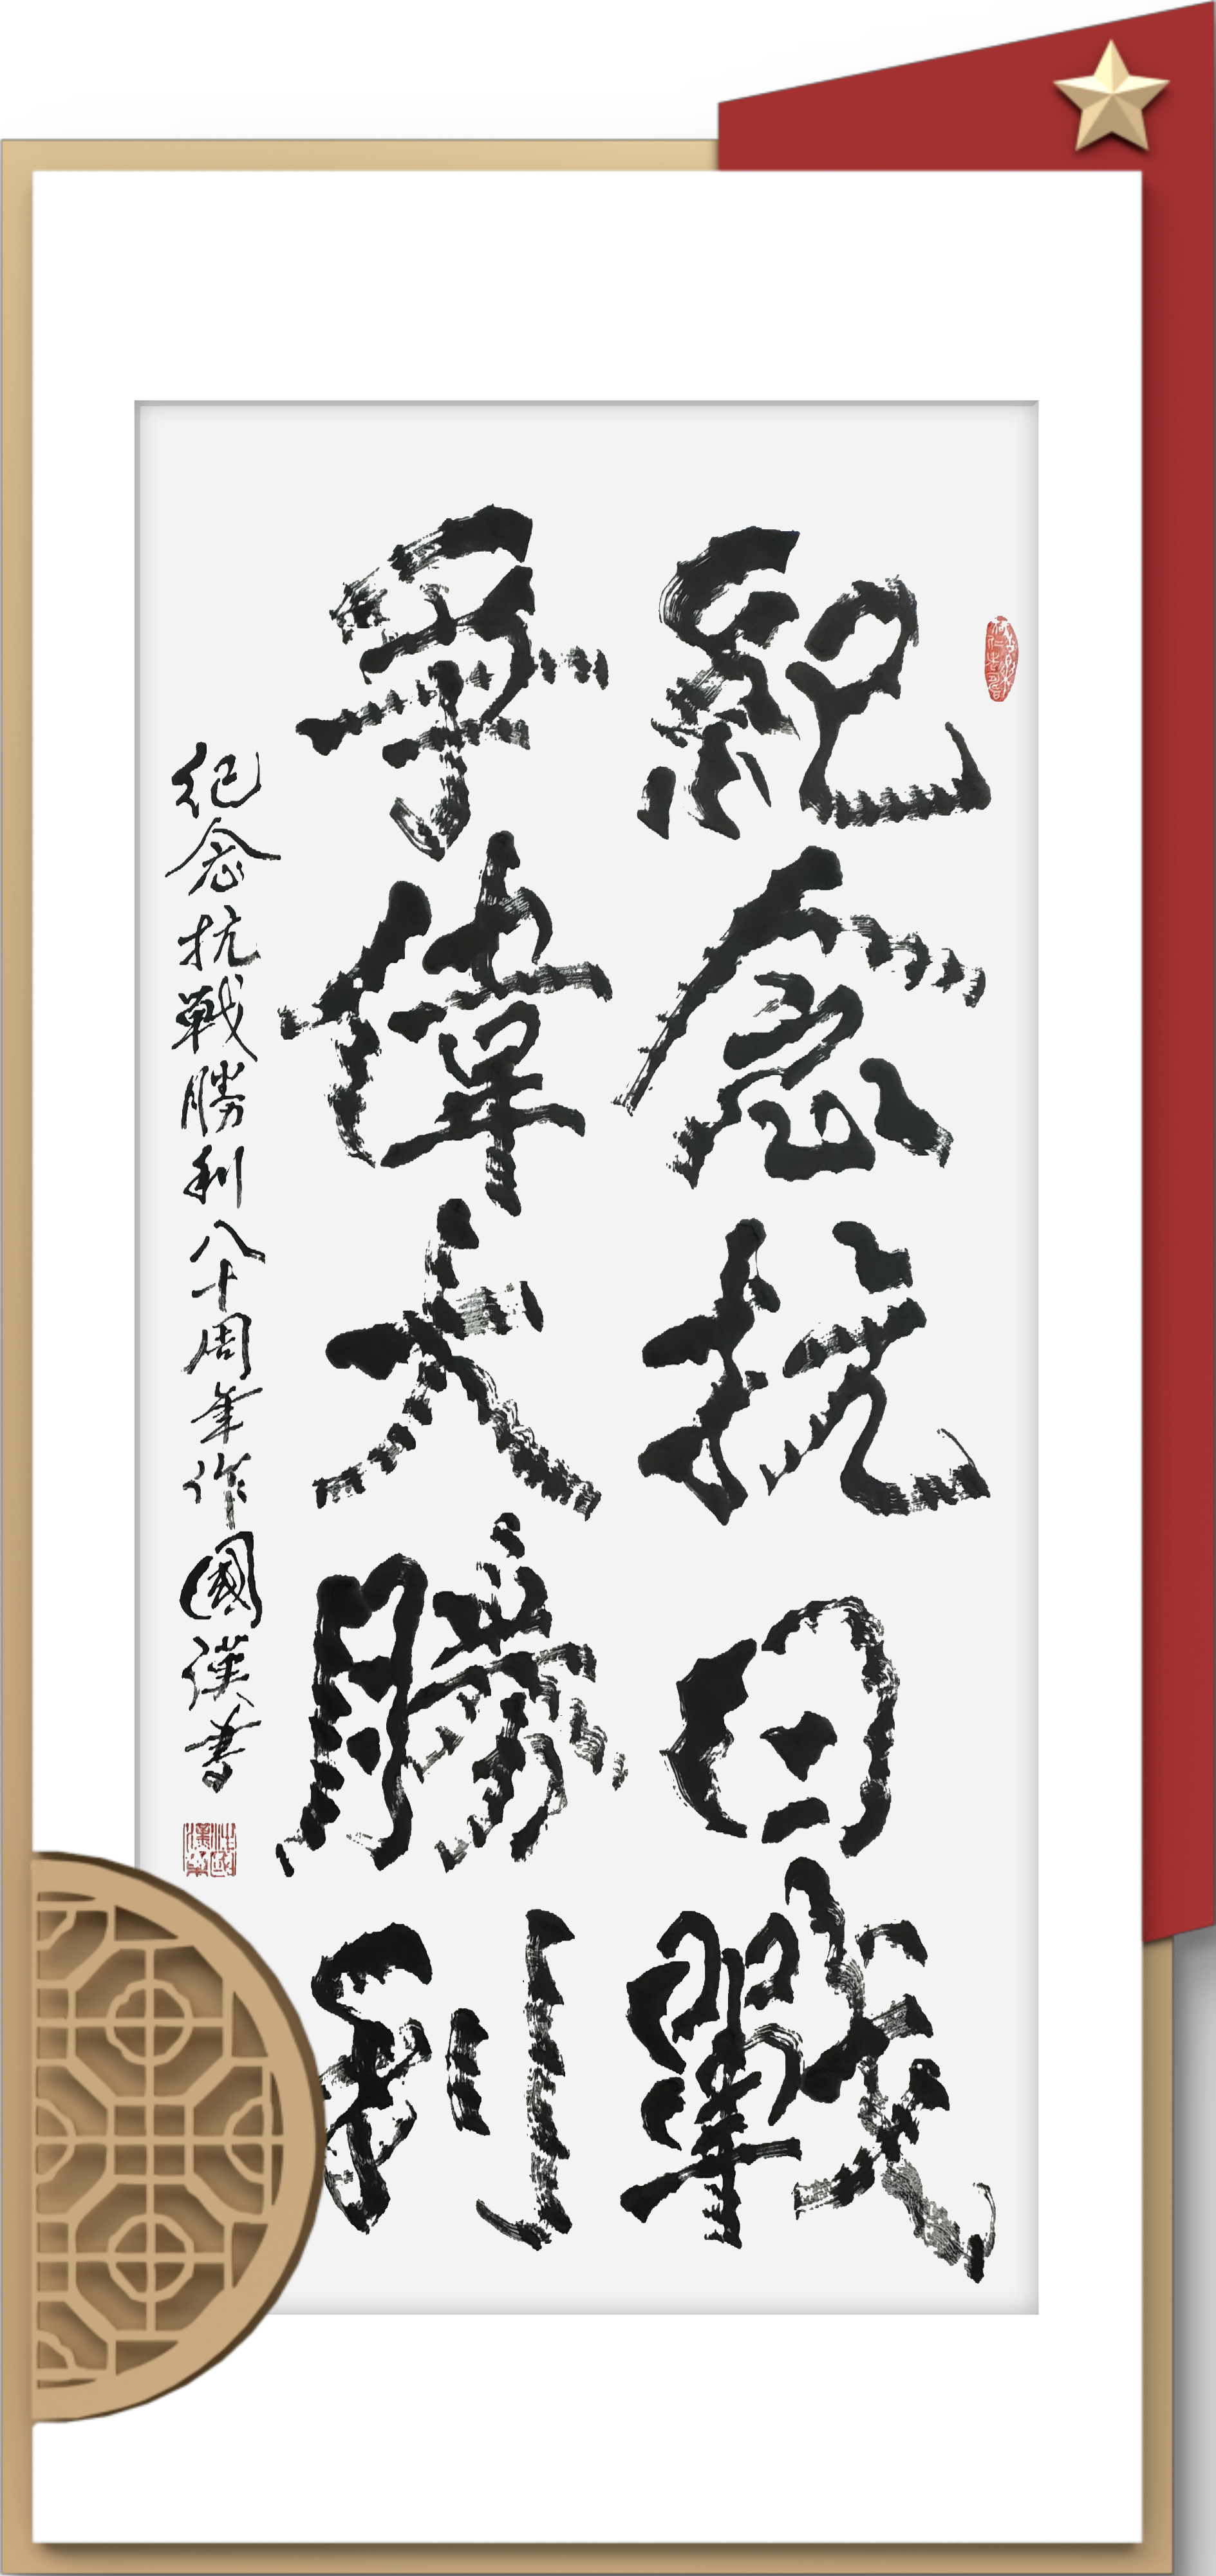 紀念抗日戰
爭偉大勝利
纪念抗戰勝利八十周年作國漢書